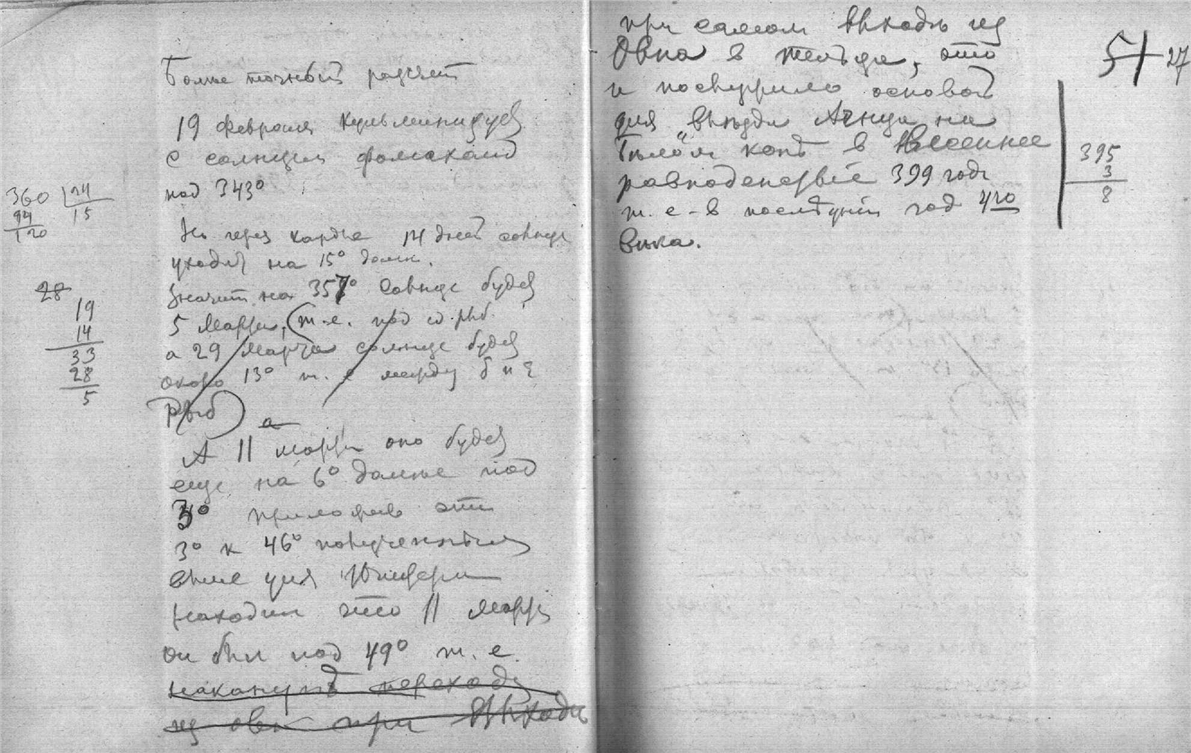 Более точный расчет
19 февраля кульминирует
с солнцем фомальгаут
под 343°
360 24
15
120
Но через каждые 14 дней солнце
уходит на 15° далее.
28
19
14
33
28
5
Значит на 357° Солнце будет
5 марта, (т.е. под ω рыб.
а 29 марта солнце будет
около 13° т. е между δ и ξ
Рыб)
А 11 марта оно будет
еще на 6° далее под
3° приложив эти
3° к 46° полученным
выше для Юпитера
находим что 11 марта
он был под 49° т. е.
накануне перехода
из овна при выходе
при самом выходе из
Овна в тельца, это
и послужило основой
для въезда Агнца на
белом коне в Весеннее
равноденствие 399 года
т. е - в последний год 4го
века.
5 27
395
3
8